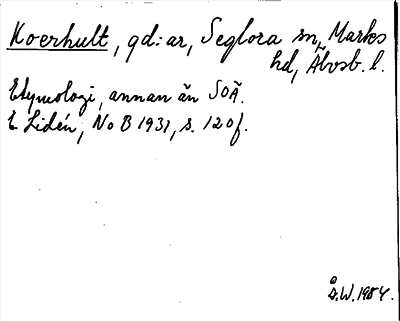 Koerhult, gd:ar, Seglora sn, Marks
hd, Älvsb. l.
Etymologi, annan än SOÄ.
E Lidén, NoB 1931, s. 120f.
Å.W. 1984.